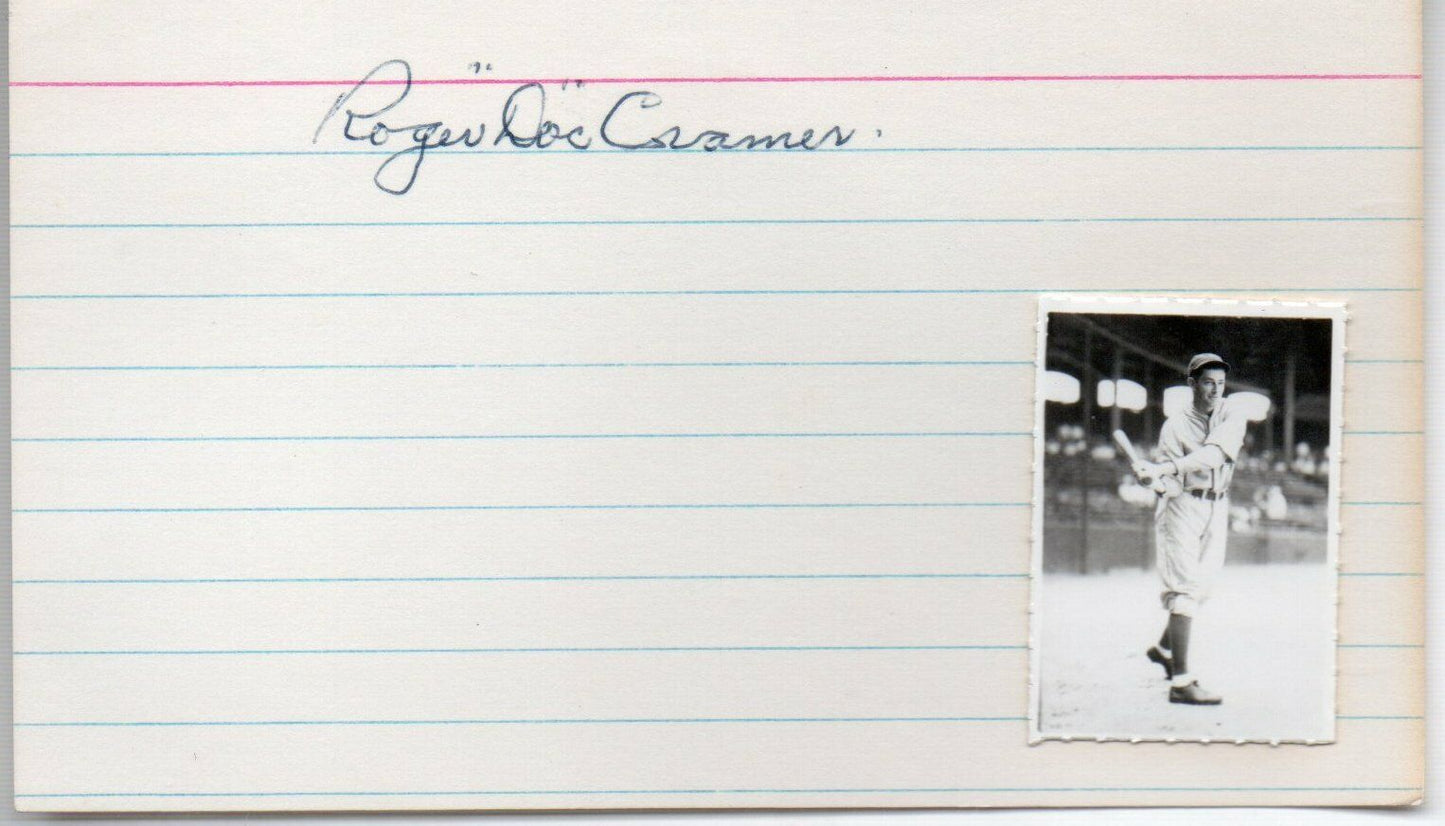 Roger "Doc" Cramer.